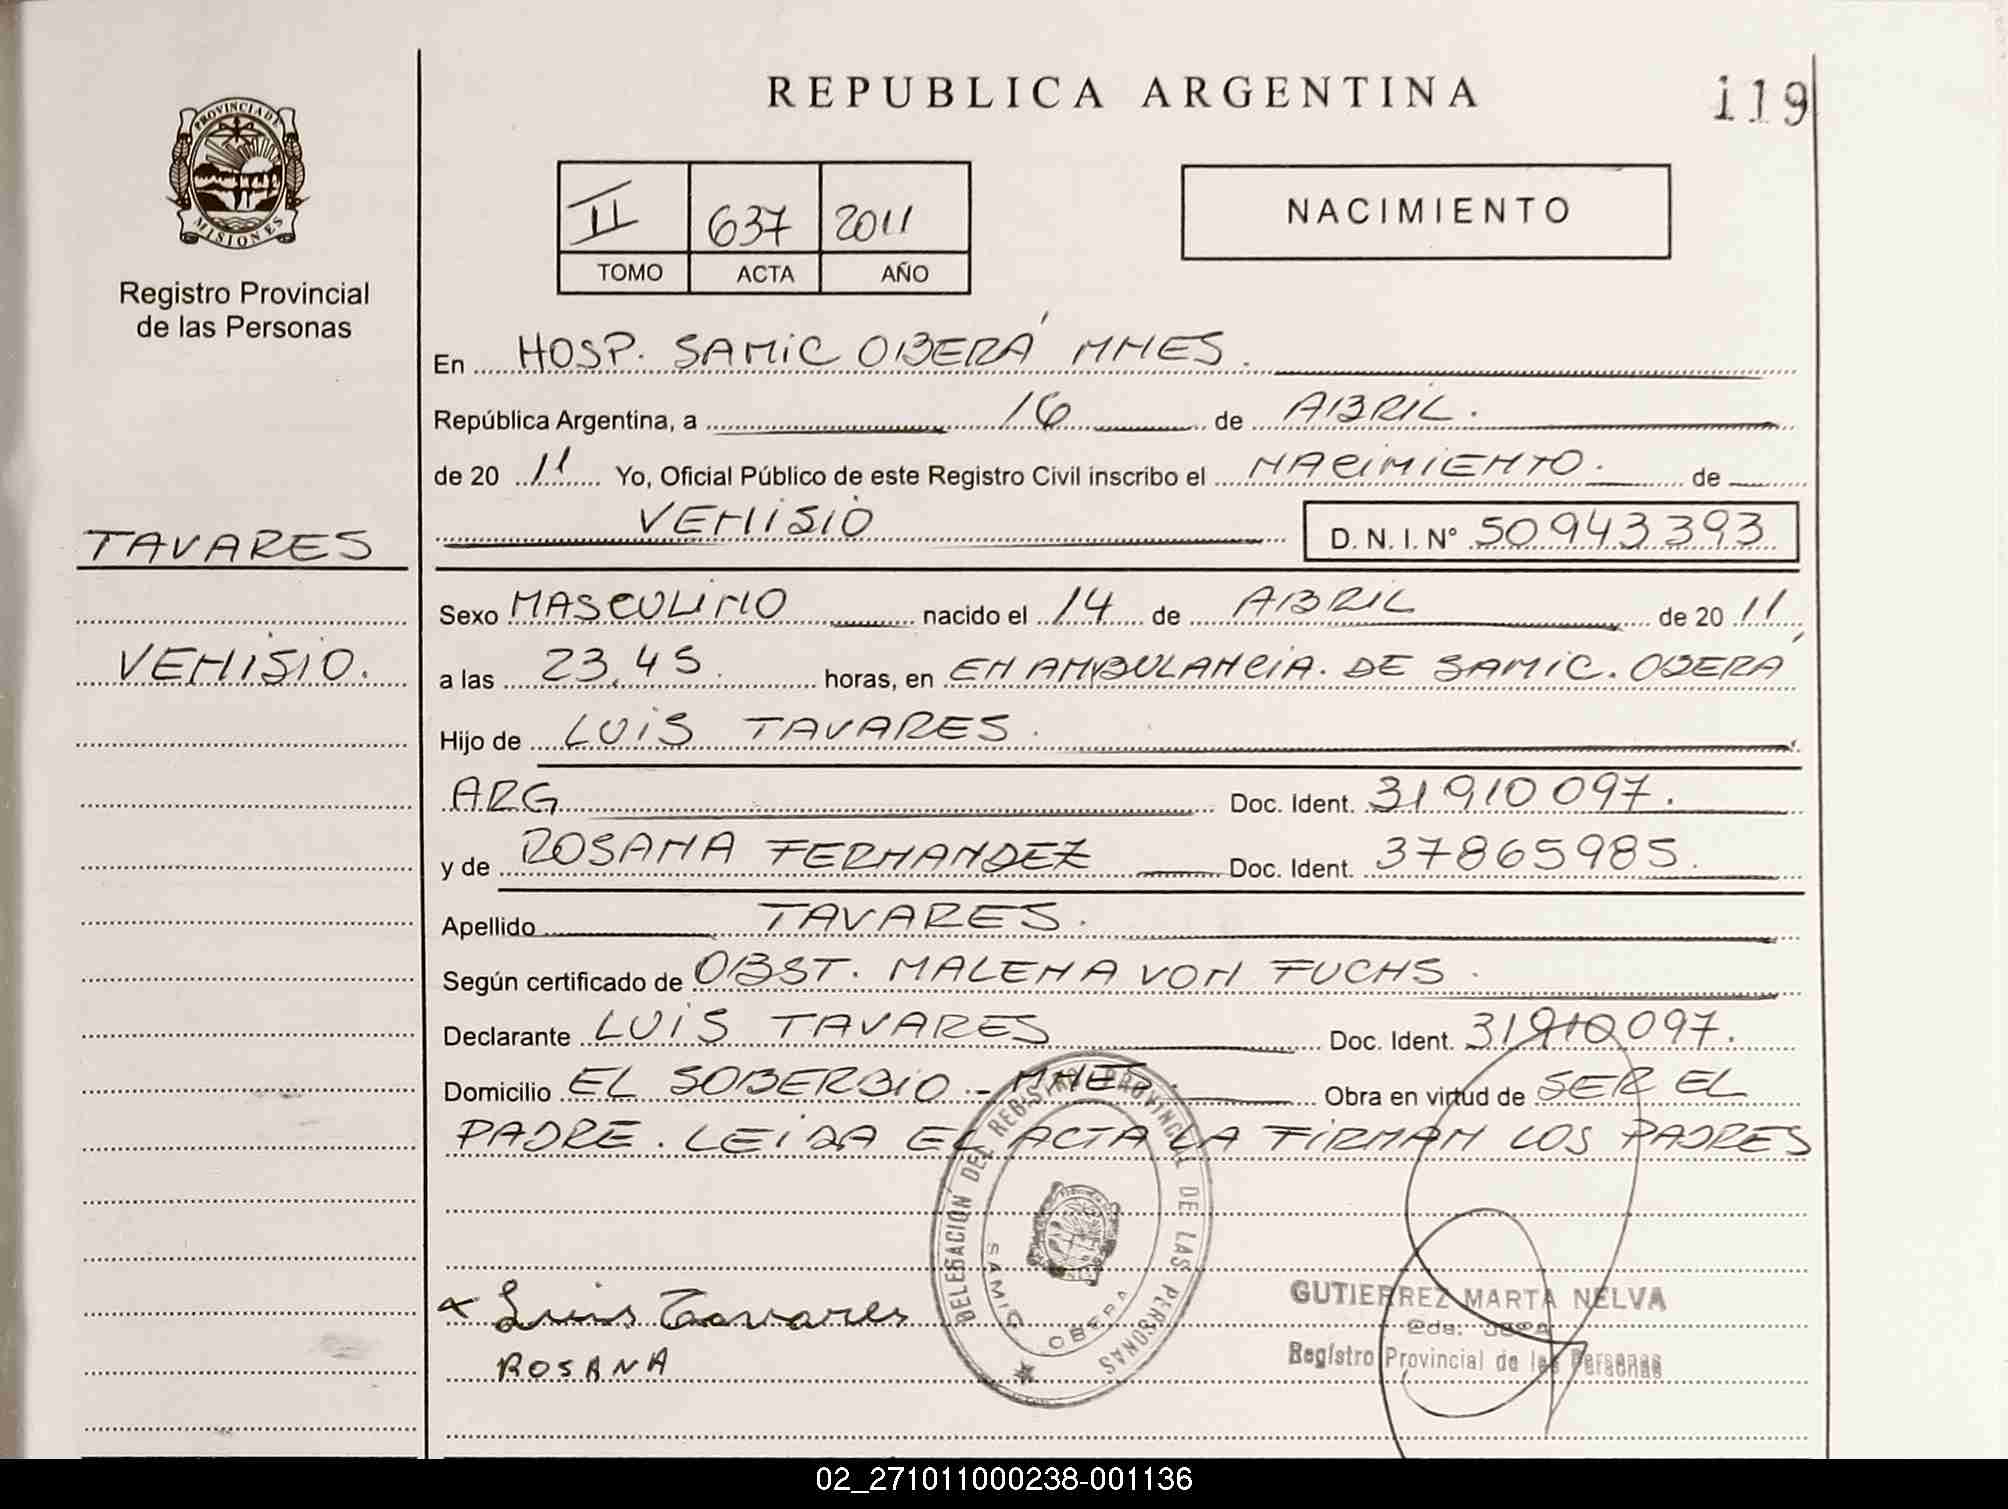 REPUBLICA ARGENTINA
119
PROVINCIA DE
MISIONES
Registro Provincial
de las Personas
II 637 2011
TOMO ACTA AÑO
NACIMIENTO
En HOSP. SAMIC OBERÁ MNES.
República Argentina, a 16 de ABRIL.
de 20 11 Yo, Oficial Público de este Registro Civil inscribo el NACIMIENTO. de
VENISIO
D. N. I. N° 50943393
TAVARES
VENISIO.
Sexo MASCULINO nacido el 14 de ABRIL de 20 11,
a las 23,45. horas, en EN AMBULANCIA. DE SAMIC. OBERÁ
Hijo de LUIS TAVARES.
ARG Doc. Ident. 31910097.
y de ROSANA FERNANDEZ Doc. Ident. 37865985.
Apellido TAVARES.
Según certificado de OBST. MALENA VON FUCHS.
Declarante LUIS TAVARES Doc. Ident. 31910097.
Domicilio EL SOBERBIO - MNES. Obra en virtud de SER EL
PADRE. LEIDA EL ACTA LA FIRMAN LOS PADRES
DELEGACIÓN DEL REGISTRO PROVINCIAL DE LAS PERSONAS
SAMIC OBERA
Luis Tavares
ROSANA
GUTIERREZ MARTA NELVA
Registro Provincial de las Personas
02_271011000238-001136